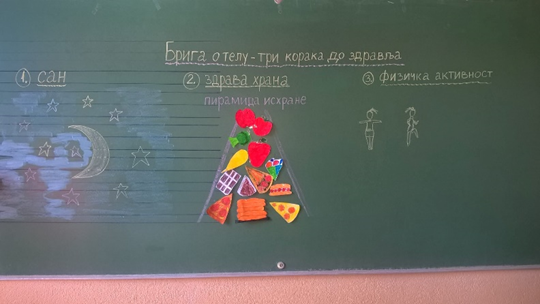 Брига о телу - три корака до здравља
① сан
② здрава храна
пирамида исхране
③ физичка активност